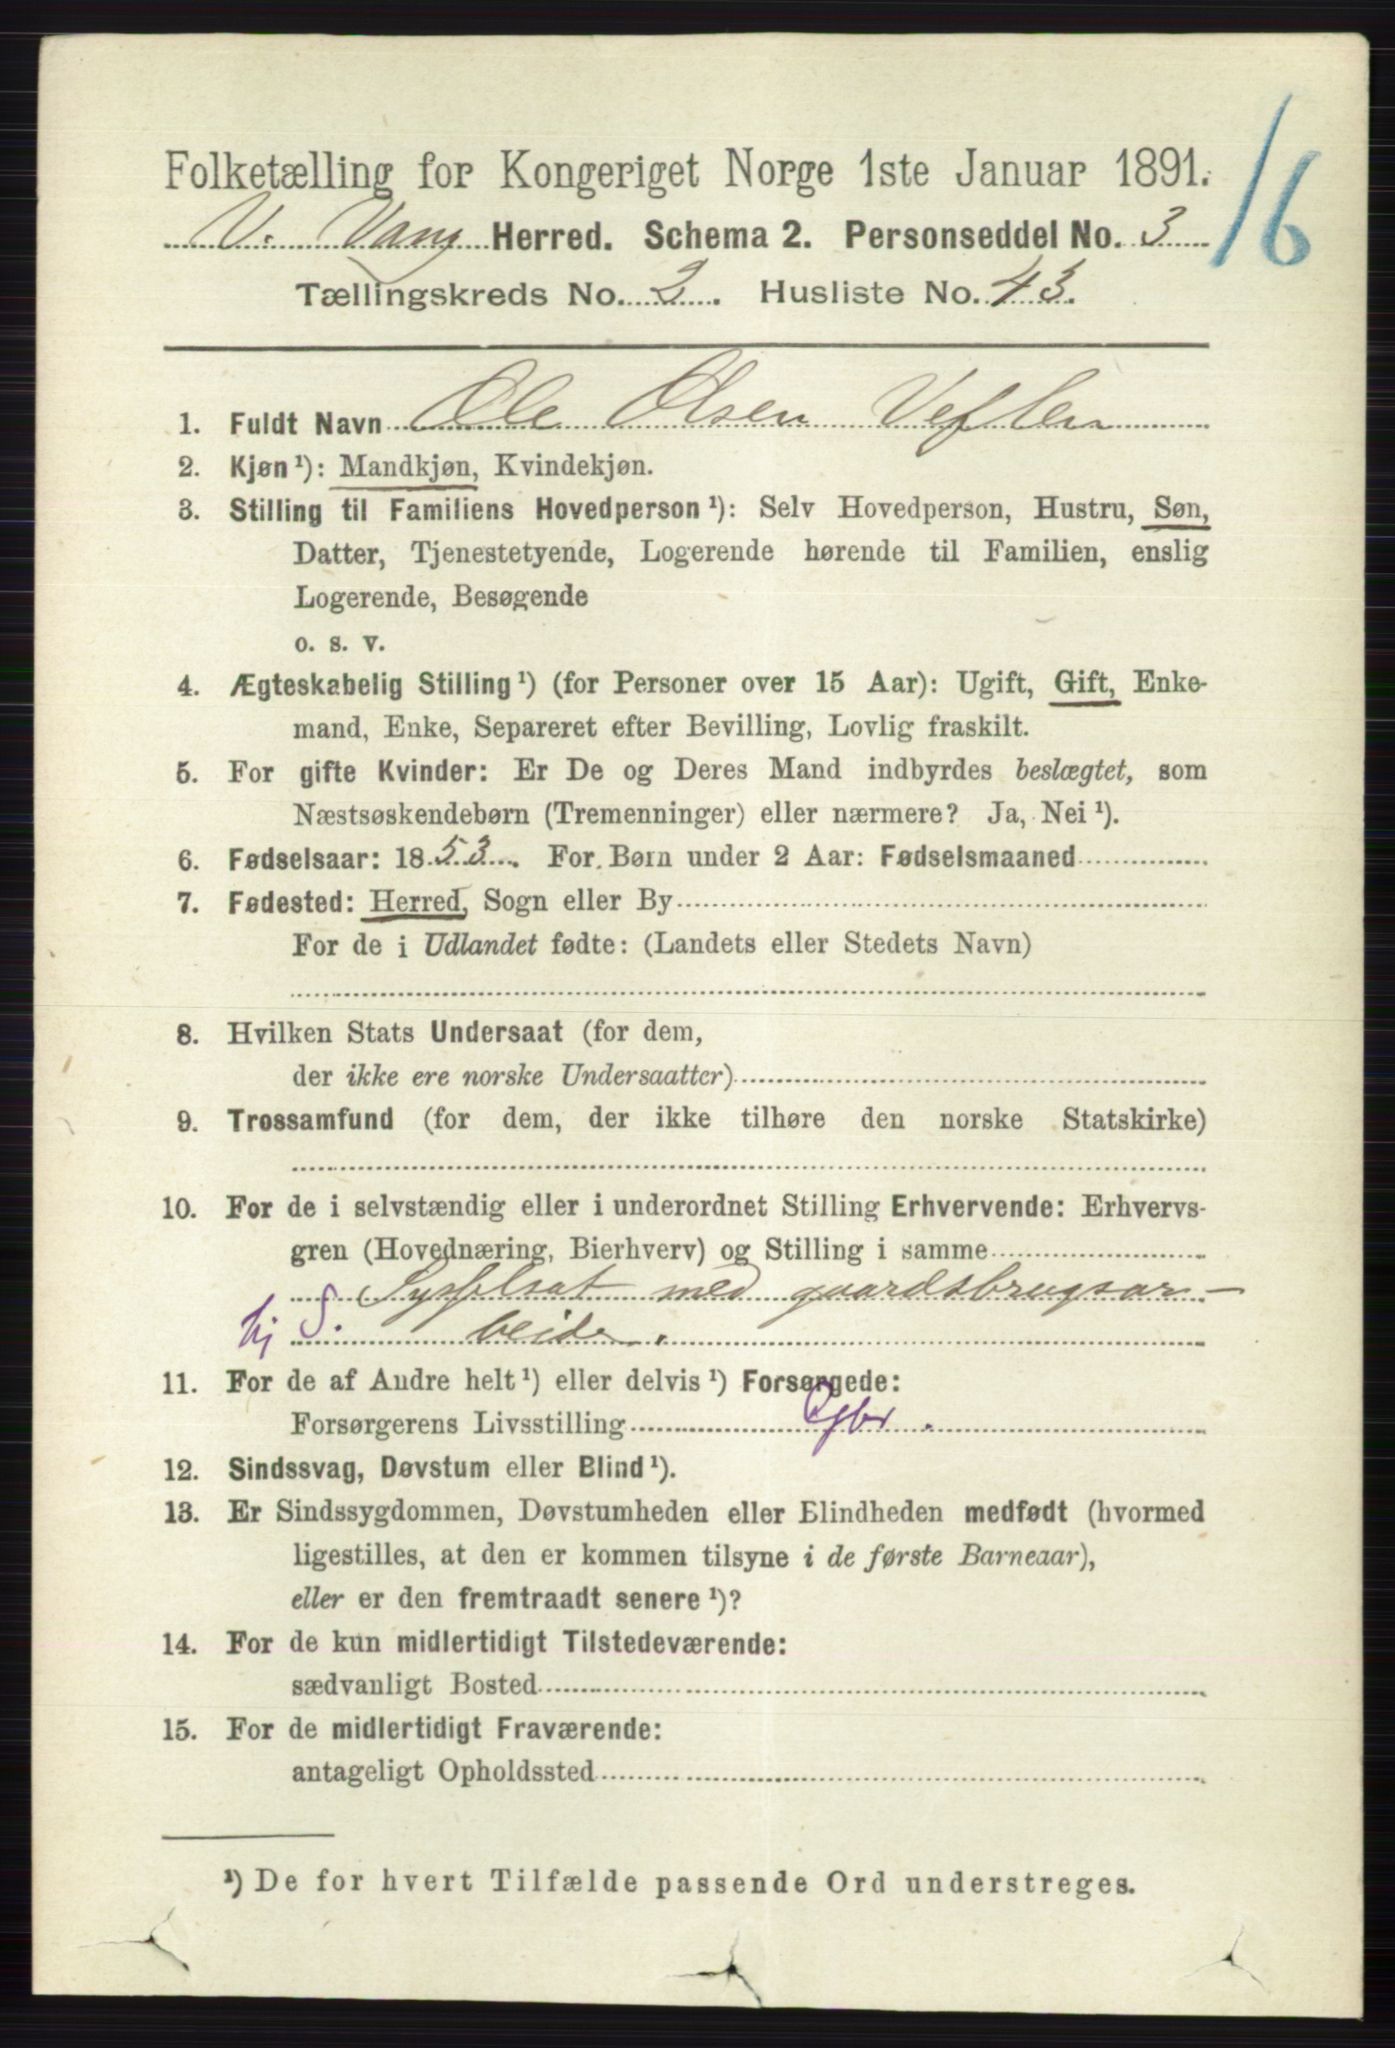 16
Folketælling for Kongeriget Norge 1ste Januar 1891.
V. Vang Herred. Schema 2. Personseddel No. 3
Tællingskreds No. 2. Husliste No. 43.
1. Fuldt Navn Ole Olsen Veflen
2. Kjøn ¹): Mandkjøn, Kvindekjøn.
3. Stilling til Familiens Hovedperson ¹): Selv Hovedperson, Hustru, Søn,
Datter, Tjenestetyende, Logerende hørende til Familien, enslig
Logerende, Besøgende
o. s. v.
4. Ægteskabelig Stilling ¹) (for Personer over 15 Aar): Ugift, Gift, Enke-
mand, Enke, Separeret efter Bevilling, Lovlig fraskilt.
5. For gifte Kvinder: Er De og Deres Mand indbyrdes beslægtet, som
Næstsøskendebørn (Tremenninger) eller nærmere? Ja, Nei ¹).
6. Fødselsaar: 1853. For Børn under 2 Aar: Fødselsmaaned
7. Fødested: Herred, Sogn eller By
For de i Udlandet fødte: (Landets eller Stedets Navn)
8. Hvilken Stats Undersaat (for dem,
der ikke ere norske Undersaatter)
9. Trossamfund (for dem, der ikke tilhøre den norske Statskirke)
10. For de i selvstændig eller i underordnet Stilling Erhvervende: Erhvervs-
gren (Hovednæring, Bierhverv) og Stilling i samme
Sysselsat med gaardsbrugsar-
hj S. beide.
11. For de af Andre helt ¹) eller delvis ¹) Forsørgede:
Forsørgerens Livsstilling Gbr.
12. Sindssvag, Døvstum eller Blind ¹).
13. Er Sindssygdommen, Døvstumheden eller Blindheden medfødt (hvormed
ligestilles, at den er kommen tilsyne i de første Barneaar),
eller er den fremtraadt senere ¹)?
14. For de kun midlertidigt Tilstedeværende:
sædvanligt Bosted
15. For de midlertidigt Fraværende:
antageligt Opholdssted
¹) De for hvert Tilfælde passende Ord understreges.